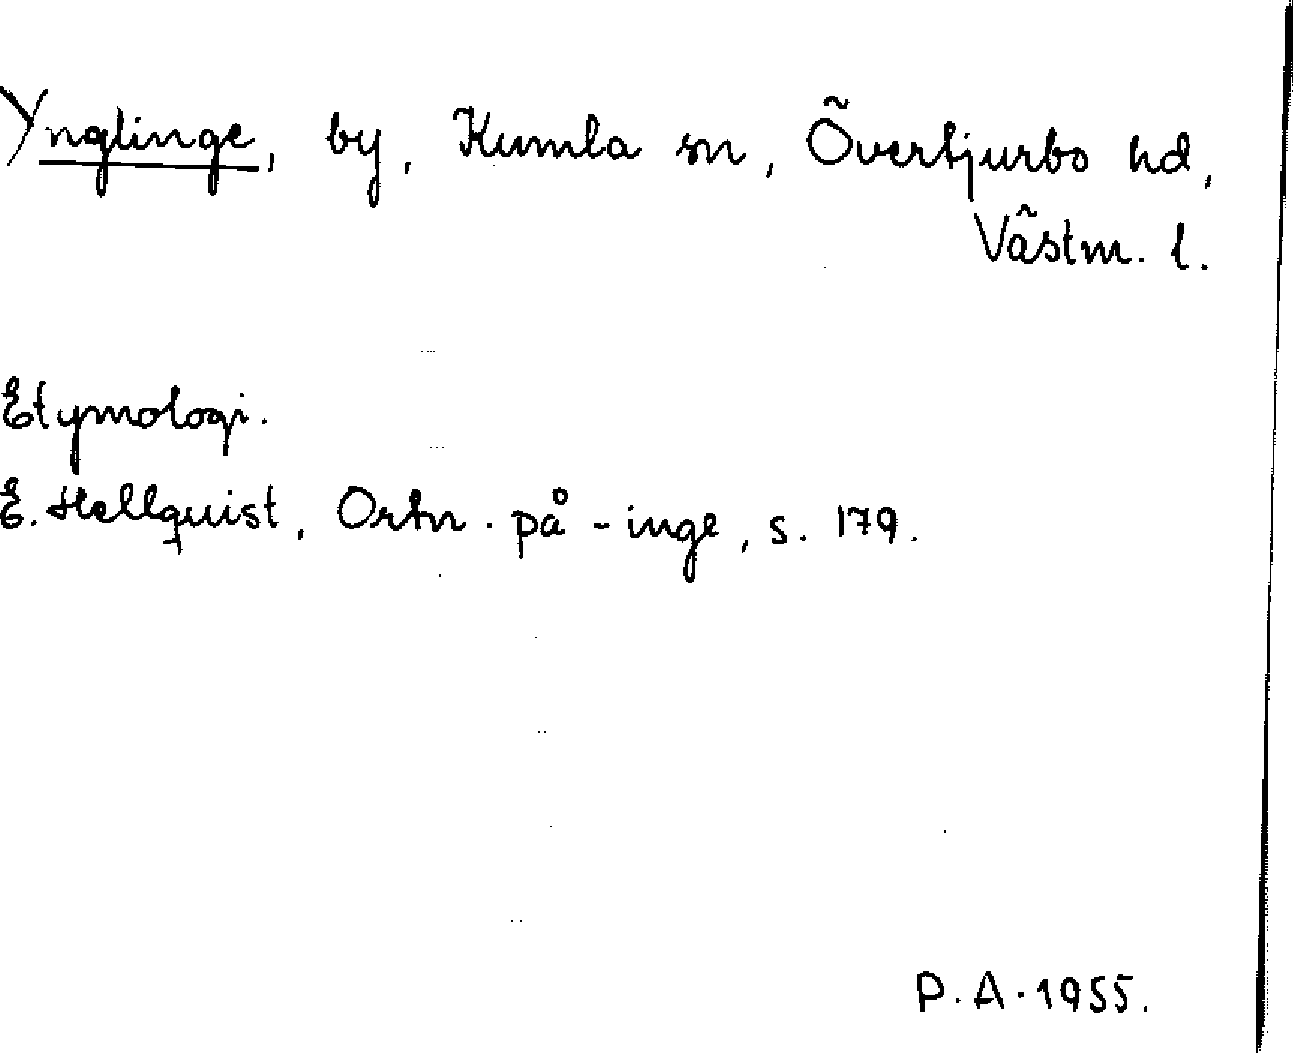 Ynglinge, by, Kumla sn, Övertjurbo hd,
Västm. l.
Etymologi.
E. Hellquist, Ortn. på -inge, s. 179.
P.A. 1955.